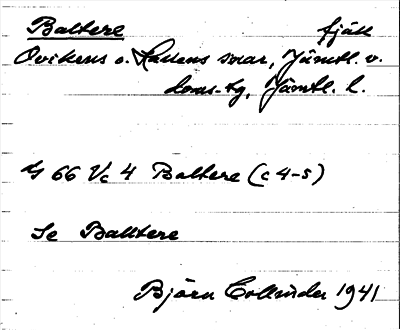 Baltere fjäll
Ovikens o. Hallens snar, Jämtl. v.
doms-tg, Jämtl. l.
G 66 Vc 4 Baltere (c 4-5)
Se Balltere
Björn Collinder 1941